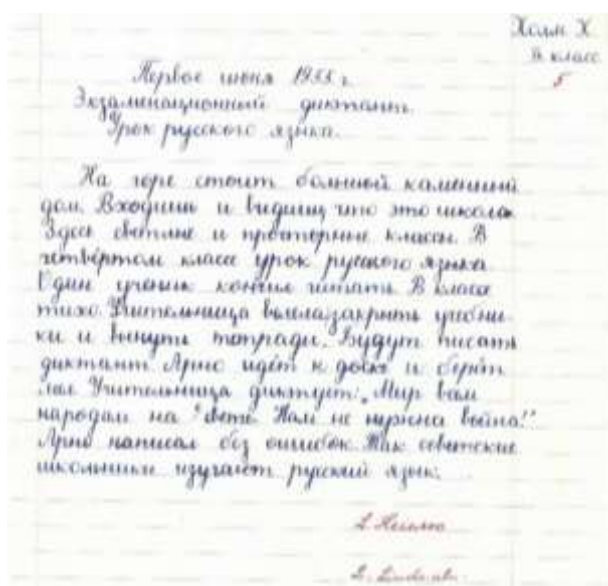 Холм Х.
IV класс
5
Первое июня 1955 г.
Экзаменационный диктант.
Урок русского языка.
На горе стоит большой каменный
дом. Входишь и видишь, что это школа.
Здесь светлые и просторные классы. В
четвёртом классе урок русского языка.
Один ученик кончил читать. В классе
тихо. Учительница велела закрыть учебни-
ки и вынуть тетради. Будут писать
диктант. Арно идёт к доске и берёт
мел. Учительница диктует: „Мир вам
народам на свете. Нам не нужна война!"
Арно написал без ошибок. Так советские
школьники изучают русский язык.